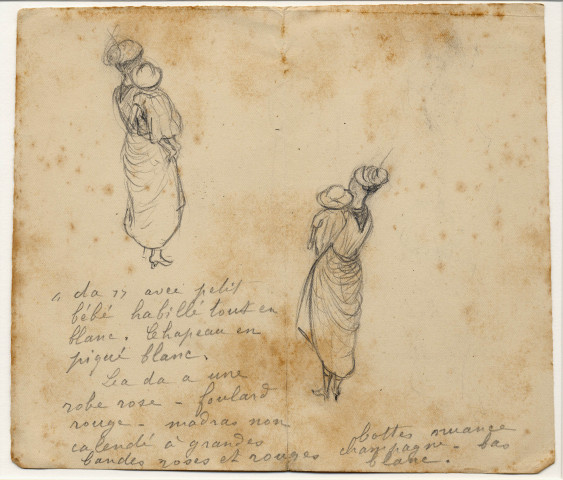 " da " avec petit
bébé habillé tout en
blanc. Chapeau en
piqué blanc.
La da a une
robe rose - foulard
rouge - madras non
calendé à grandes
bandes roses et rouges
bottes nuance
champagne - bas
blanc.